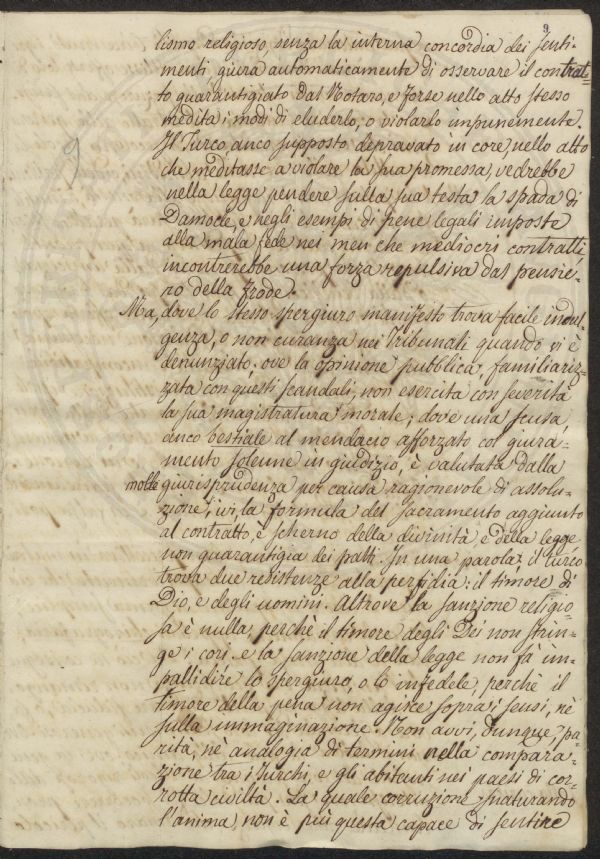 9
lismo religioso, senza la interna concordia dei senti-
menti giura automaticamente di osservare il contrat-
to guarantigiato dal Notaro, e forse nello atto stesso
medita i modi di eluderlo, o violarlo impunemente.
Il Turco, anco supposto depravato in core, nello atto
che meditasse a violare la sua promessa, vedrebbe
nella legge pendere sulla sua testa la spada di
Damocle, e negli esempi di pene legali imposte
alla mala fede nei men che mediocri contratti,
incontrerebbe una forza repulsiva dal pensie-
ro della frode.
Ma, dove lo stesso spergiuro manifesto trova facile indul-
genza, o non curanza nei Tribunali quando vi è
denunziato: ove la opinione pubblica, familiariz-
zata con questi scandali, non esercita con severità
la sua magistratura morale; dove una scusa,
anco bestiale al mendacio afforzato col giura-
mento solenne in giudizio, è valutata dalla
molle giurisprudenza per causa ragionevole di assolu-
zione, ivi, la formula del sacramento aggiunto
al contratto, è scherno della divinità e della legge
non guarantigia dei patti. In una parola: il turco
trova due resistenze alla perfidia: il timore di
Dio, e degli uomini. Altrove la sanzione religio-
sa è nulla, perchè il timore degli Dei non strin-
ge i cori, e la sanzione della legge non fà im-
pallidire lo spergiuro, o lo infedele, perchè il
timore della pena non agisce sopra i sensi, nè
sulla immaginazione. Non avvi, dunque, pa-
rità, nè analogia di termini nella compara-
zione tra i Turchi, e gli abitanti nei paesi di cor-
rotta civiltà. La quale corruzione snaturando
l'anima, non è più questa capace di sentire
9